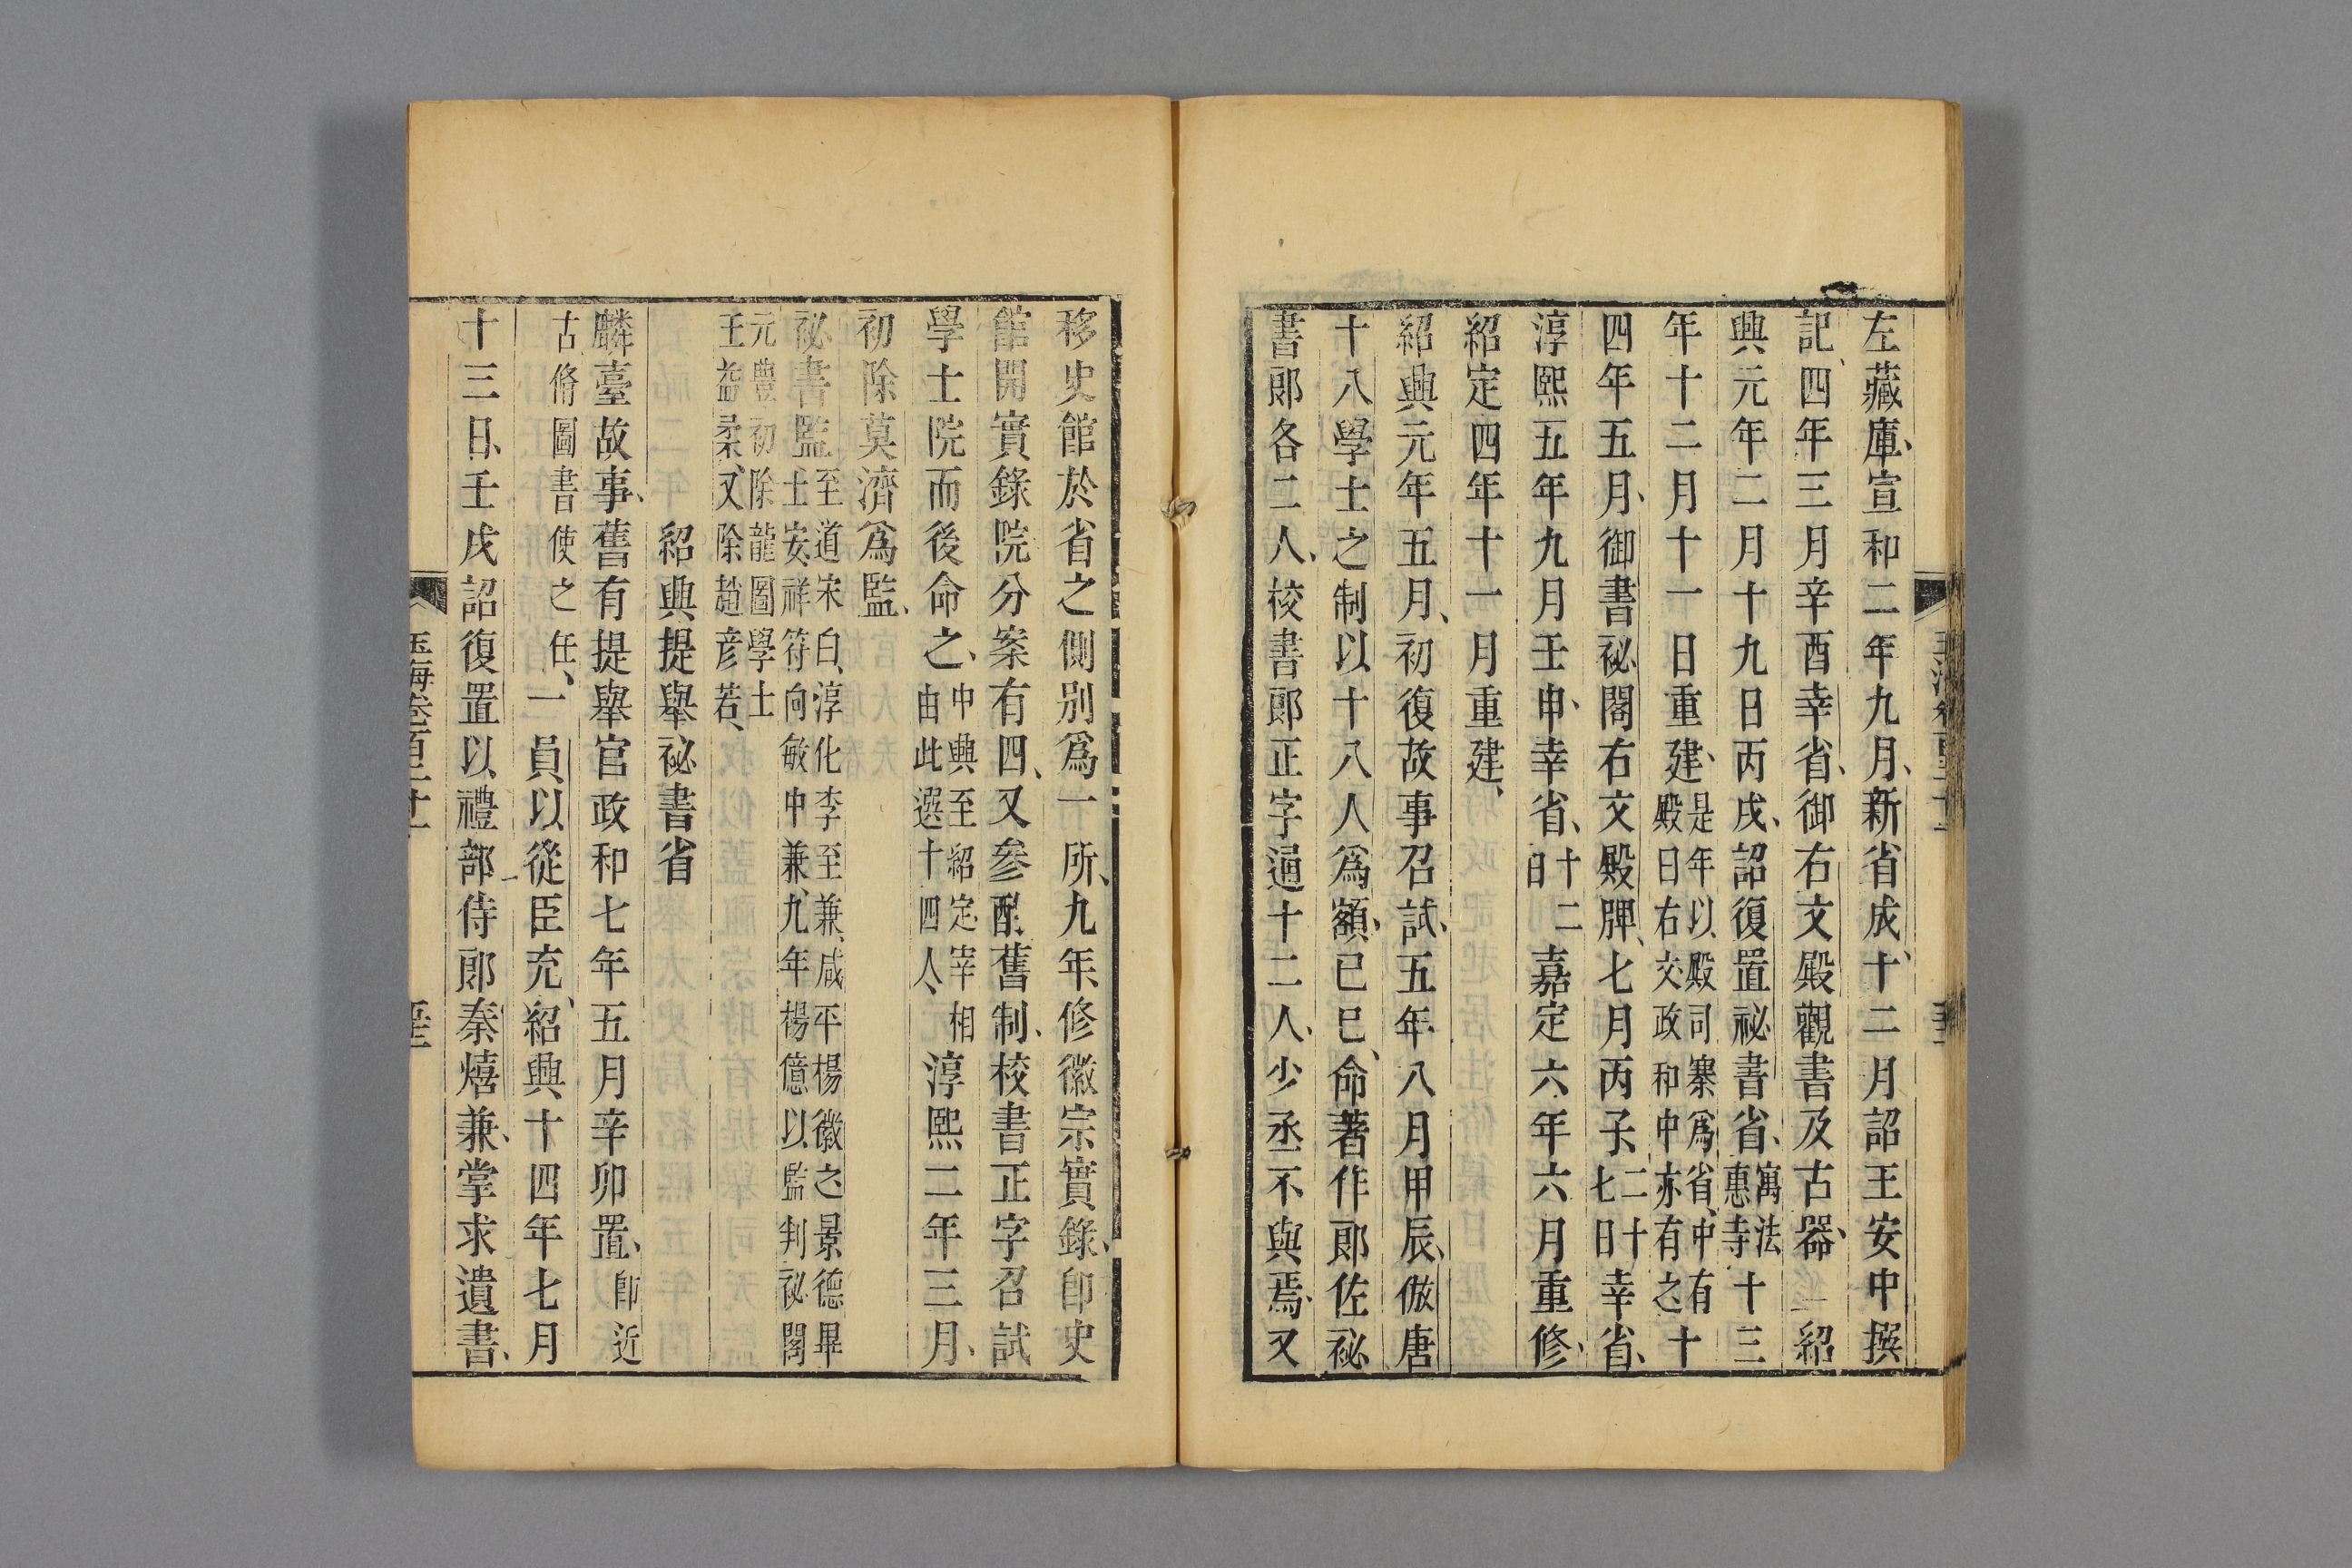 左藏庫、宣和二年九月、新省成、十二月詔王安中撰
記、四年三月辛酉幸省、御右文殿觀書及古器、紹
興元年二月十九日丙戌、詔復置祕書省、寓法惠寺十三
年十二月十一日重建、是年以殿司寨爲省、中有殿曰右文政和中亦有之十
四年五月、御書祕閣右文殿牌、七月丙子、二十七日幸省、
淳熙五年九月壬申、幸省、十二日嘉定六年六月重修、
紹定四年十一月重建、
紹興元年五月、初復故事召試、五年八月甲辰、倣唐
十八學士之制以十八人爲額、已巳、命著作郎佐祕
書郎各二人、校書郎正字通十二人、少丞不與焉、又
移史館於省之側別爲一所、九年、修徽宗實錄、卽史
館開實錄院分案有四、又參酌舊制、校書正字召試
學士院而後命之、中興至紹定宰相由此選十四人、淳熙二年三月、
初除莫濟爲監、
祕書監至道宋白、淳化李至兼、咸平楊徽之景德畢士安、祥符向敏中兼、九年楊億以監判祕閣
元豐初除龍圖學士王益柔、又除趙彥若、
紹興提舉祕書省
麟臺故事、舊有提舉官政和七年五月辛卯置、卽近
古脩圖書使之任、一員以從臣充、紹興十四年七月
十三日、壬戌詔復置以禮部侍郎秦熺兼、掌求遺書、
玉海卷百二十一